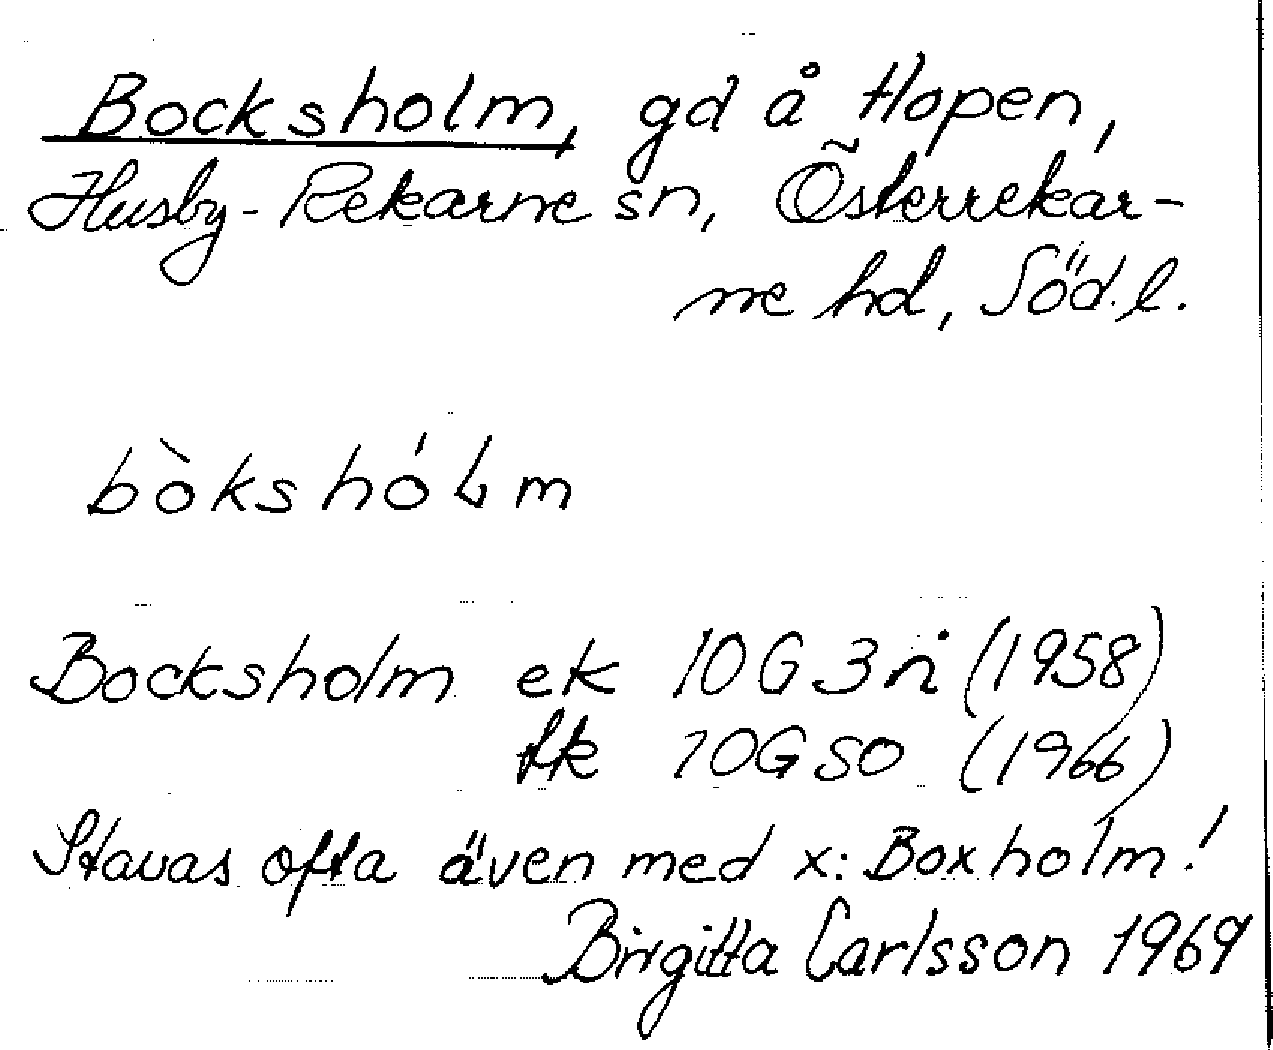 Bocksholm, gd å Hopen,
Husby-Rekarne sn, Österrekar-
ne hd, Söd.l.
bòkshóLm
Bocksholm ek 10G 3n (1958)
fk 10G SO (1966)
Stavas ofta även med x: Boxholm!
Birgitta Carlsson 1969